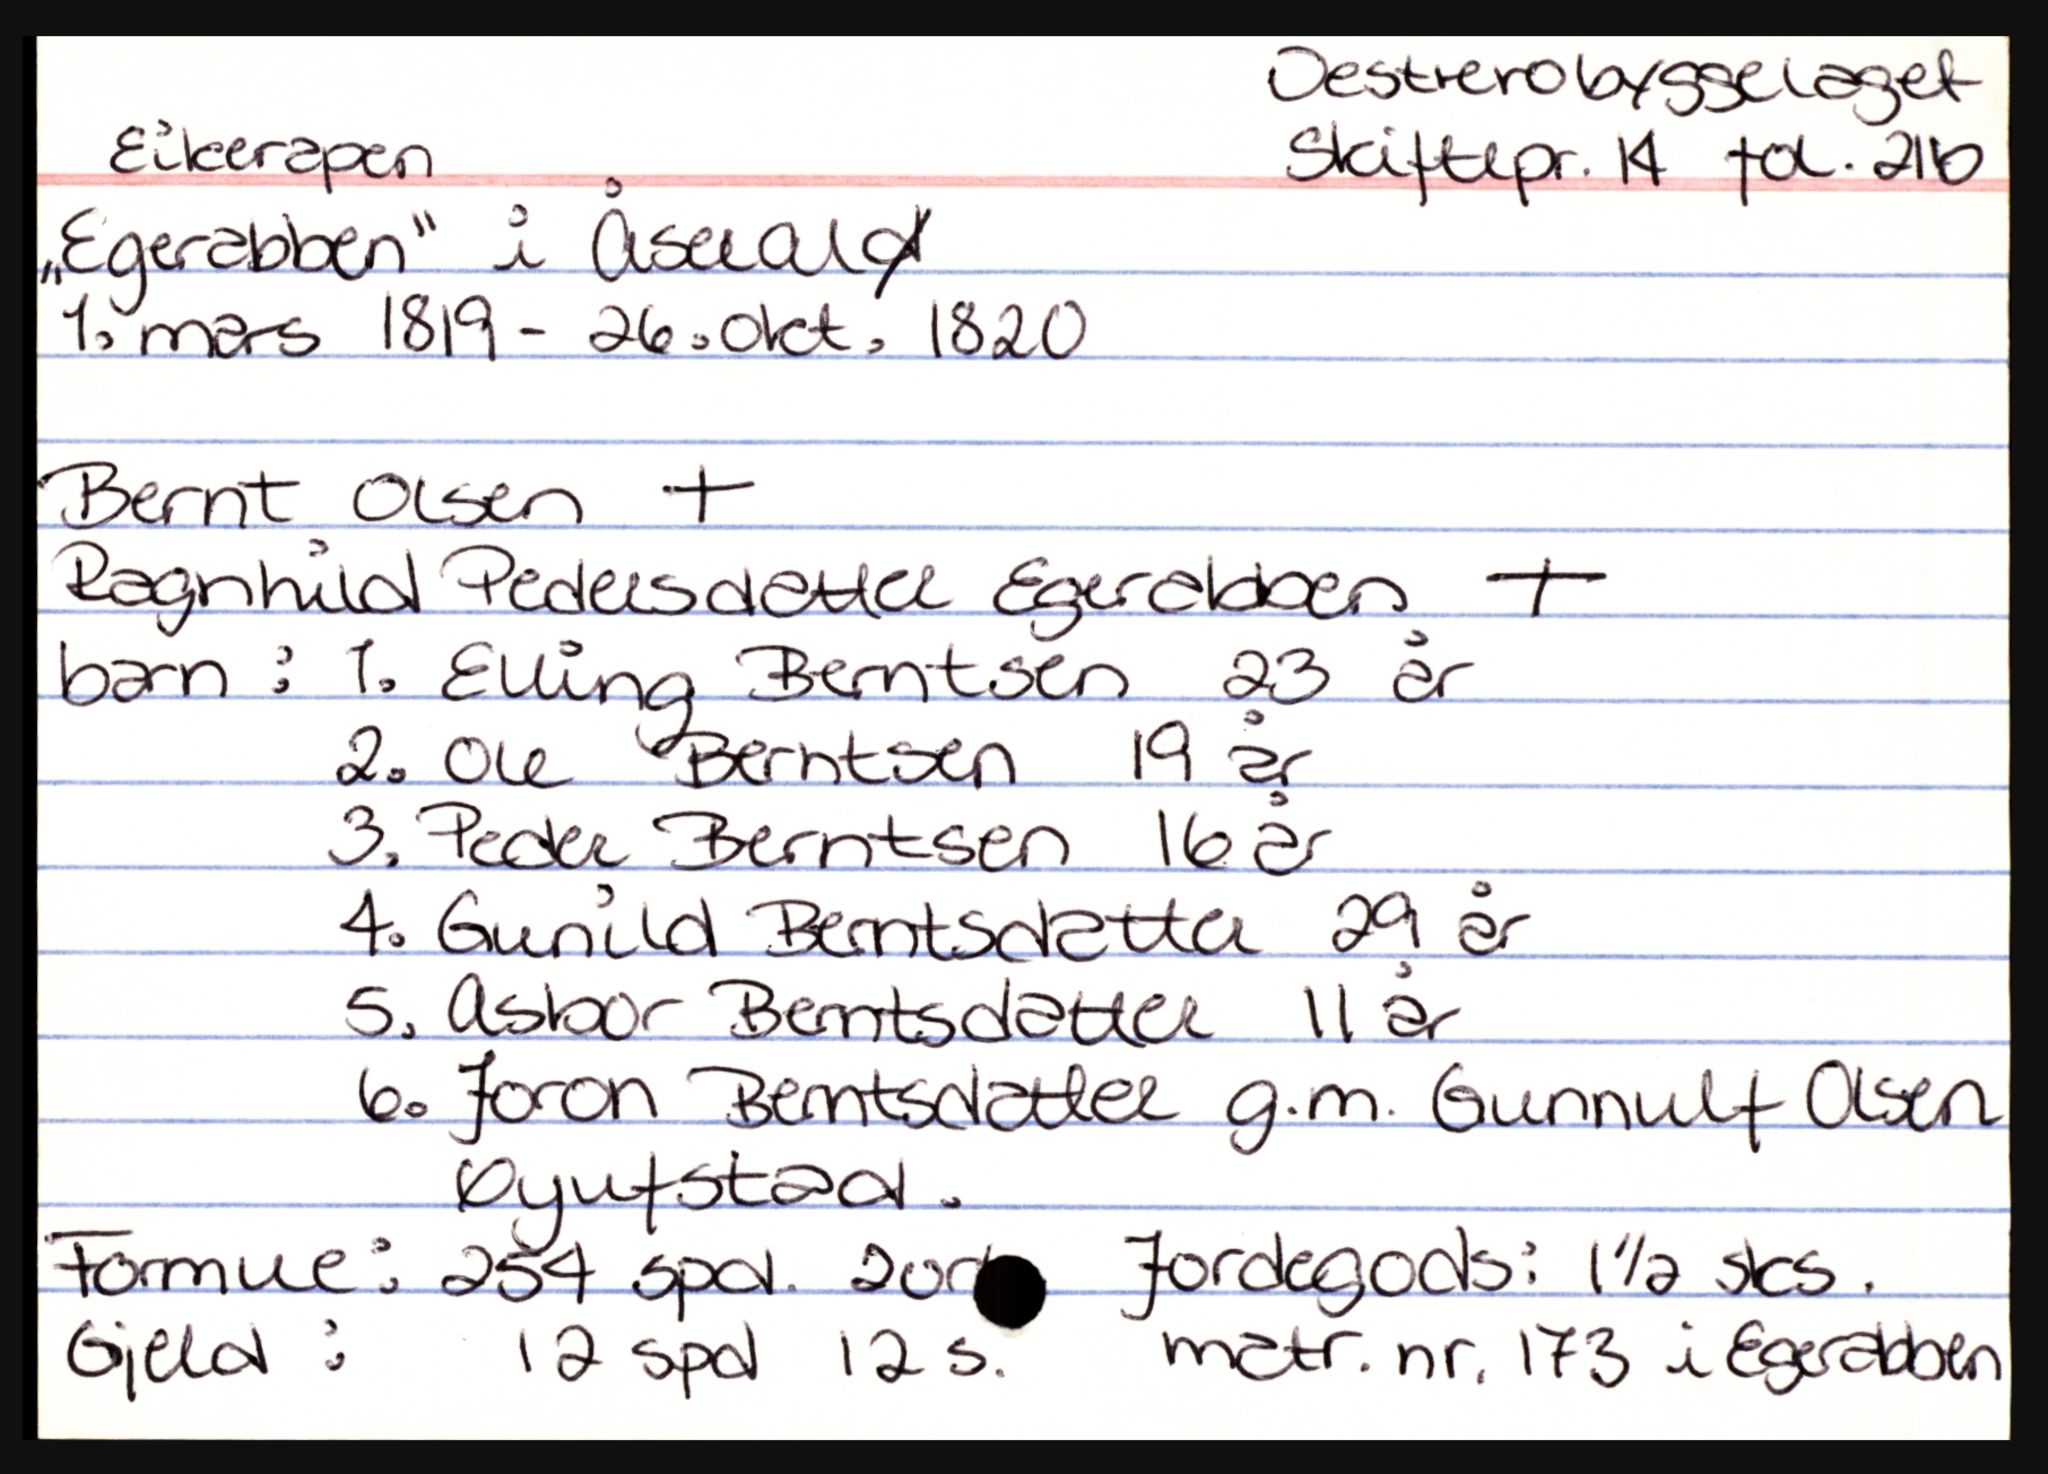 Oestrerobyggelaget
Eikerapen
Skiftepr. 14 fol. 21b
„Egerabben" i Åseral
1. mars 1819 - 26. okt. 1820
Bernt Olsen +
Ragnhild Pedersdatter Egerabben +
barn : 1. Elling Berntsen 23 år
2. Ole Berntsen 19 år
3. Peder Berntsen 16 år
4. Gunild Berntsdatter 29 år
5. Asbor Berntsdatter 11 år
6. Joron Berntsdatter g.m. Gunnulf Olsen
Øyufstad.
Formue : 254 spd. 2 ort Jordegods : 1 1/2 sks.
Gjeld : 12 spd 12 s. matr. nr. 173 i Egerabben